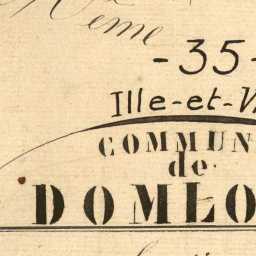 ème
-35-
Ille-et-V
COMMUN
de
DOMLO